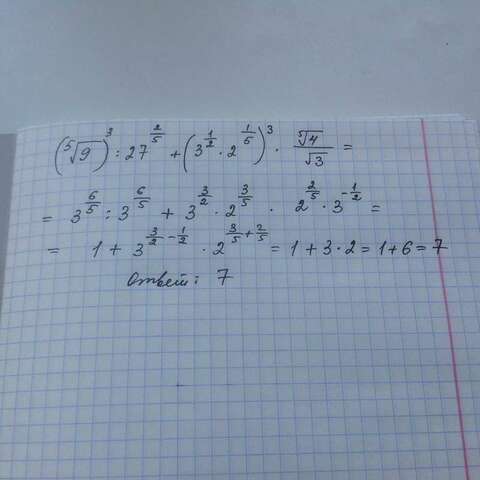 (⁵√9)³ : 27^(2/5) + (3^(1/2) · 2^(1/5))³ · ⁵√4/√3 =
= 3^(6/5) : 3^(6/5) + 3^(3/2) · 2^(3/5) · 2^(2/5) · 3^(-1/2) =
= 1 + 3^(3/2 - 1/2) · 2^(3/5 + 2/5) = 1 + 3 · 2 = 1 + 6 = 7
Ответ: 7